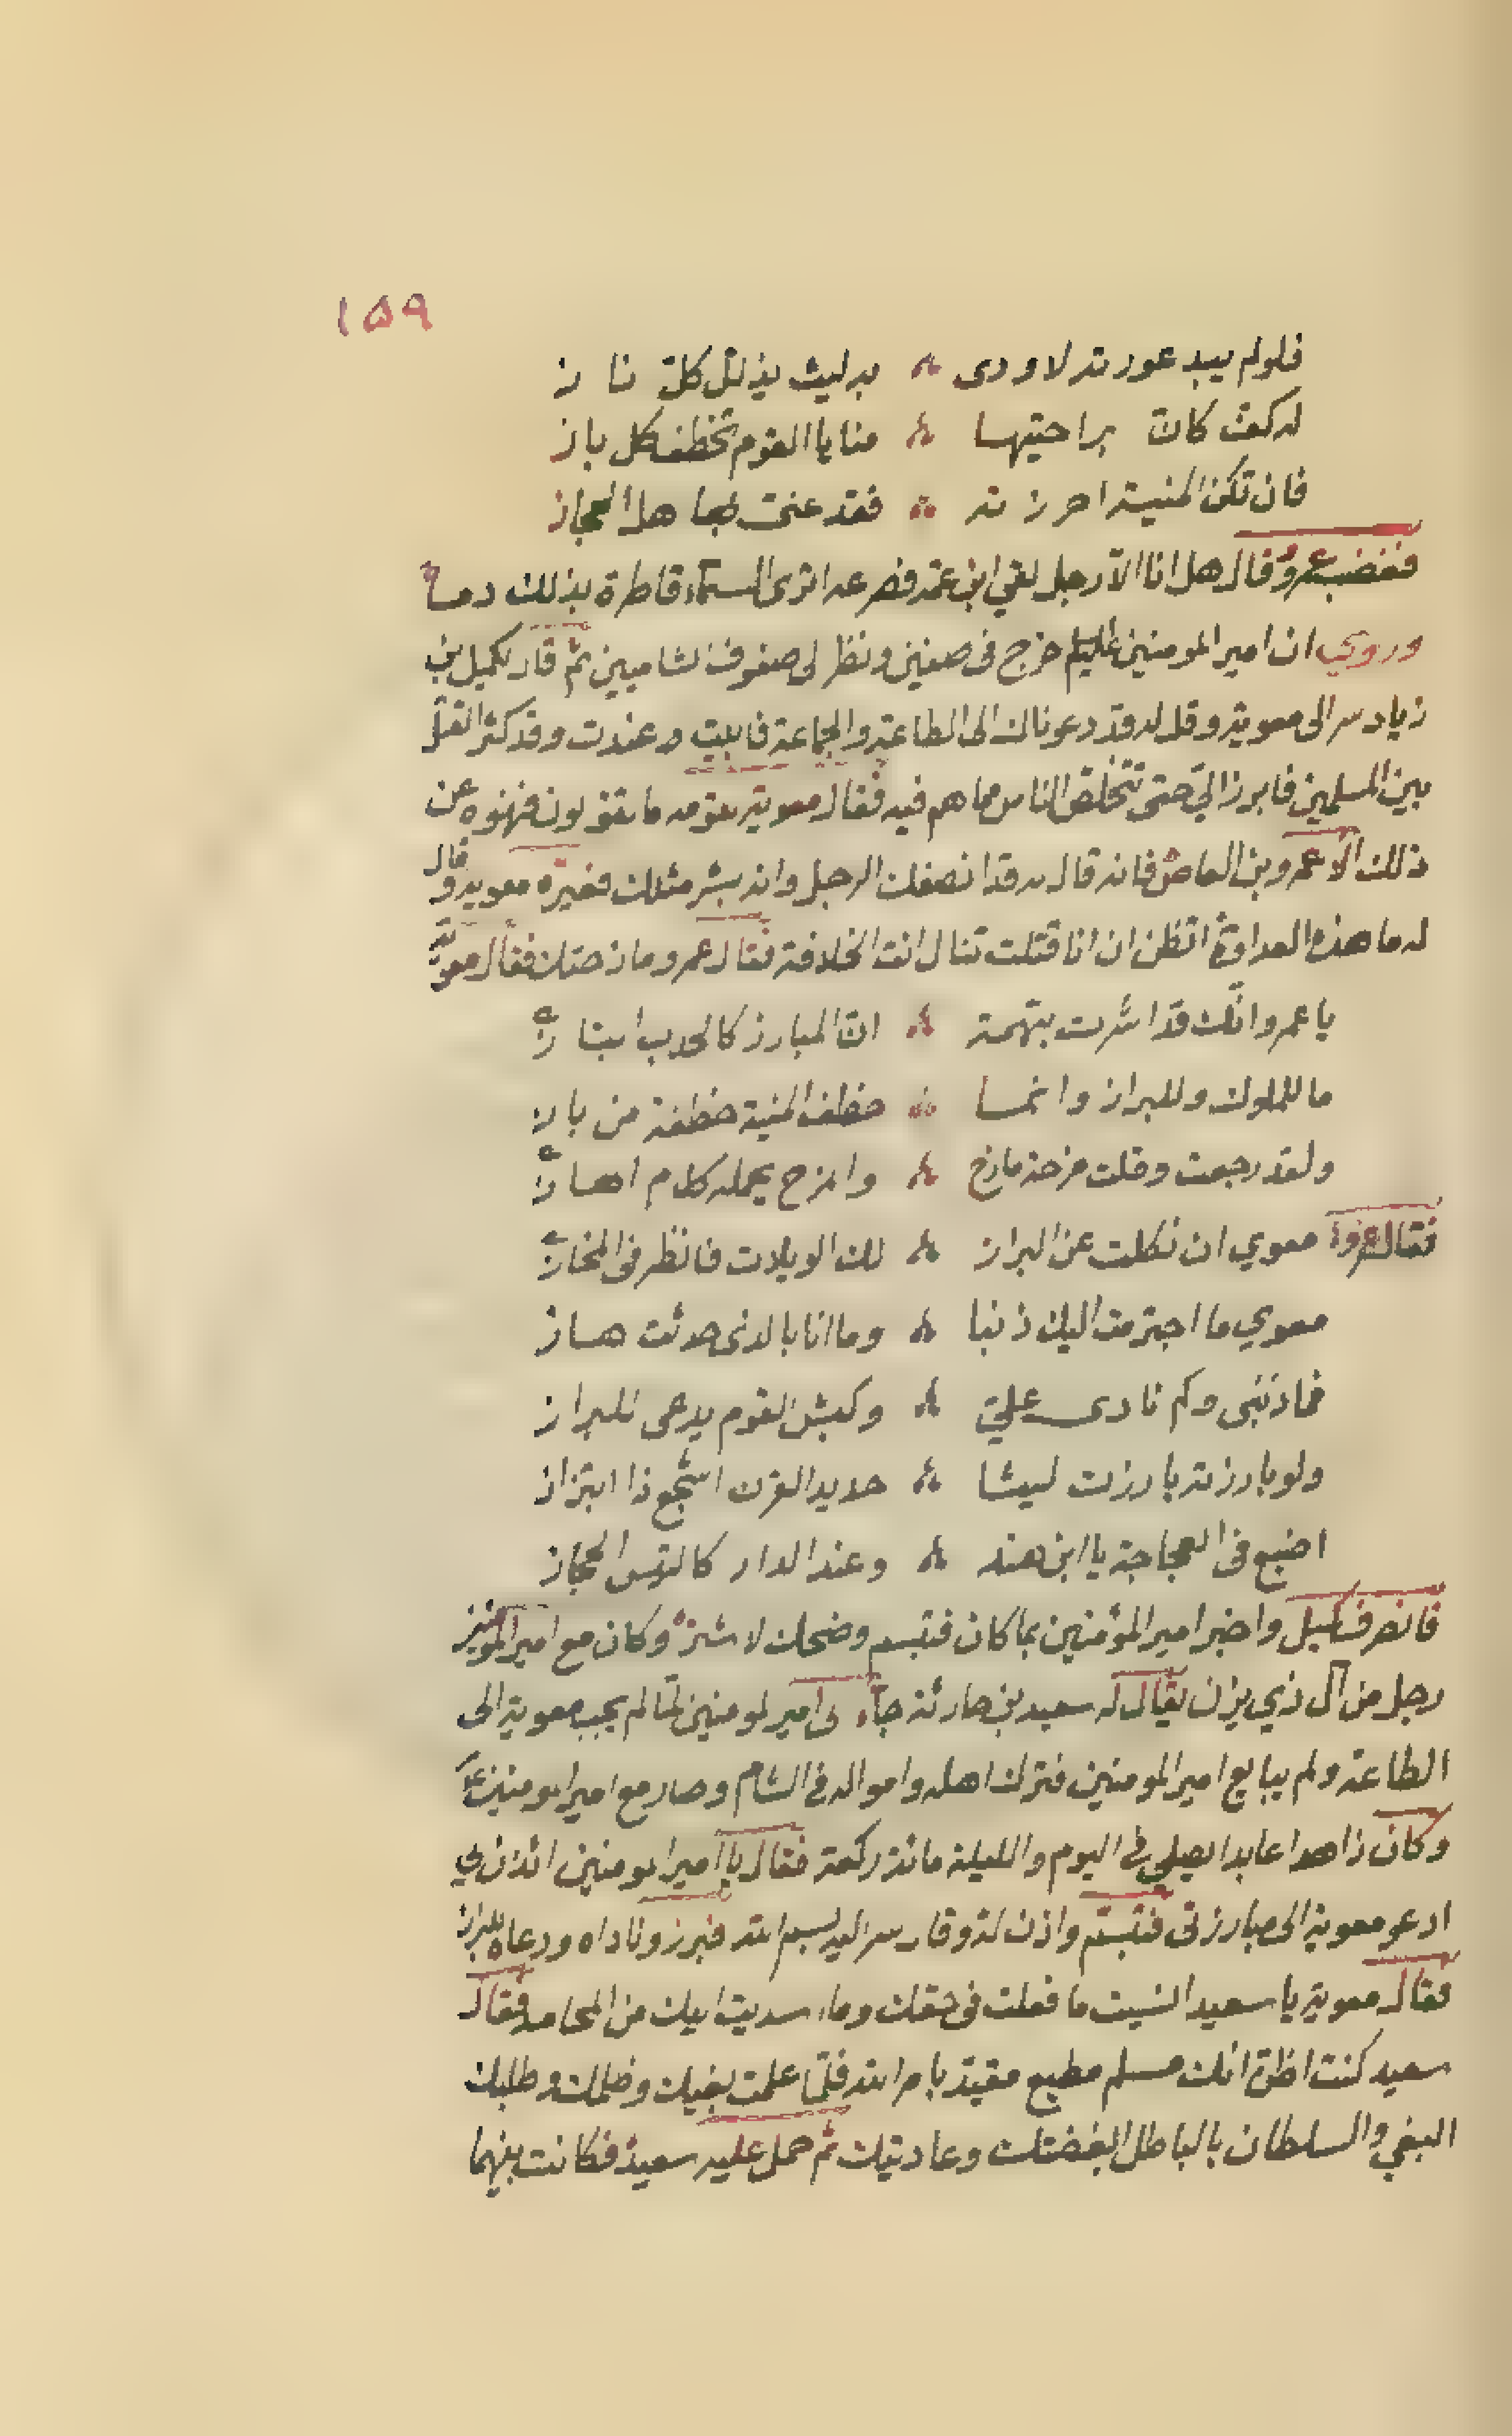 ١٥٩
فلولم يبد عورته لاودى ۞ به ليث يذلل كل نازن
له كف كان براحتيها ۞ منايا القوم تخطف كل باز
فان تكن المنية احرزته ۞ فقد غنى بها اهل الحجاز
فغضب عمرو وقال هل انا الا رجل لقي ابن عمه فصرعه اترى السماء قاطرة بذلك دما
وروي ان امير المومنين عليلم خرج فى صفين ونظر لى صفوف الشاميين ثم قال لكميل بن
زياد سر الى معوية وقل له قد دعوناك الى الطاعة والجماعة فابيت وعندت وقد كثر القتل
بين المسلمين فابرز الي حتى تتخلص الناس مما هم فيه فقال معوية لقومه ما تقولون فنهوه عن
ذلك الا عمرو بن العاص فانه قال له قد انصفك الرجل وانه بشر مثلك فغيره معوية وقال
له ما هذه العداوة اتظن ان انا قتلت تنال انت الخلافة فقال عمرو مازحتك فقال معوية
يا عمرو انك قد اشرت بتهمة ۞ ان المبارز كالجدي
ما للملوك وللبراز وانما ۞ خطف المنية خطفة من باز
ولقد رجعت وقلت مزحة مازح ۞ والمزح يحمله كلام الهاز
فقال عمرو معوي ان نكلت عن البراز ۞ لك الويلات فانظر فى المخاز
معوي ما اجترمت اليك ذنبا ۞ وما انا بالذى حدثت هاز
فما ذنبى وكم نادى علي ۞ وكبش القوم يدعى للبراز
ولو بارزته بارزت ليثا ۞ حديد القرن اشجع ذا ابتزاز
اضبع فى العجاجة يا ابن هند ۞ وعند الدار كالتيس الحجاز
فانصرف كميل واخبر امير المؤمنين بما كان فتبسم وضحك لاشتر وكان مع امير المومنين
رجل من آل ذي يزن يقال له سعيد بن حارثة جاء لى امير لمومنين لما لم يجب معوية الى
الطاعة ولم يبايع امير المومنين فترك اهله وامواله فى الشام وصار مع امير المومنين ع
وكان زاهدا عابدا يصلي فى اليوم والليلة مائة ركعة فقال يا امير المومنين ائذن لي
ادعو معوية الى مبارزتى فتبسم واذن له وقال سر اليه بسم الله فبرز وناداه ودعاه للبراز
فقال معوية يا سعيد انسيت ما فعلت فى حقك وما اسديت اليك من المحامد فقال
سعيد كنت اظن انك مسلم مطيع مقيد بامر الله فلما علمت بغيك وظلمك وطلبك
البغي والسلطان بالباطل ابغضتك وعاديتك ثم حمل عليه سعيد فكانت بينهما